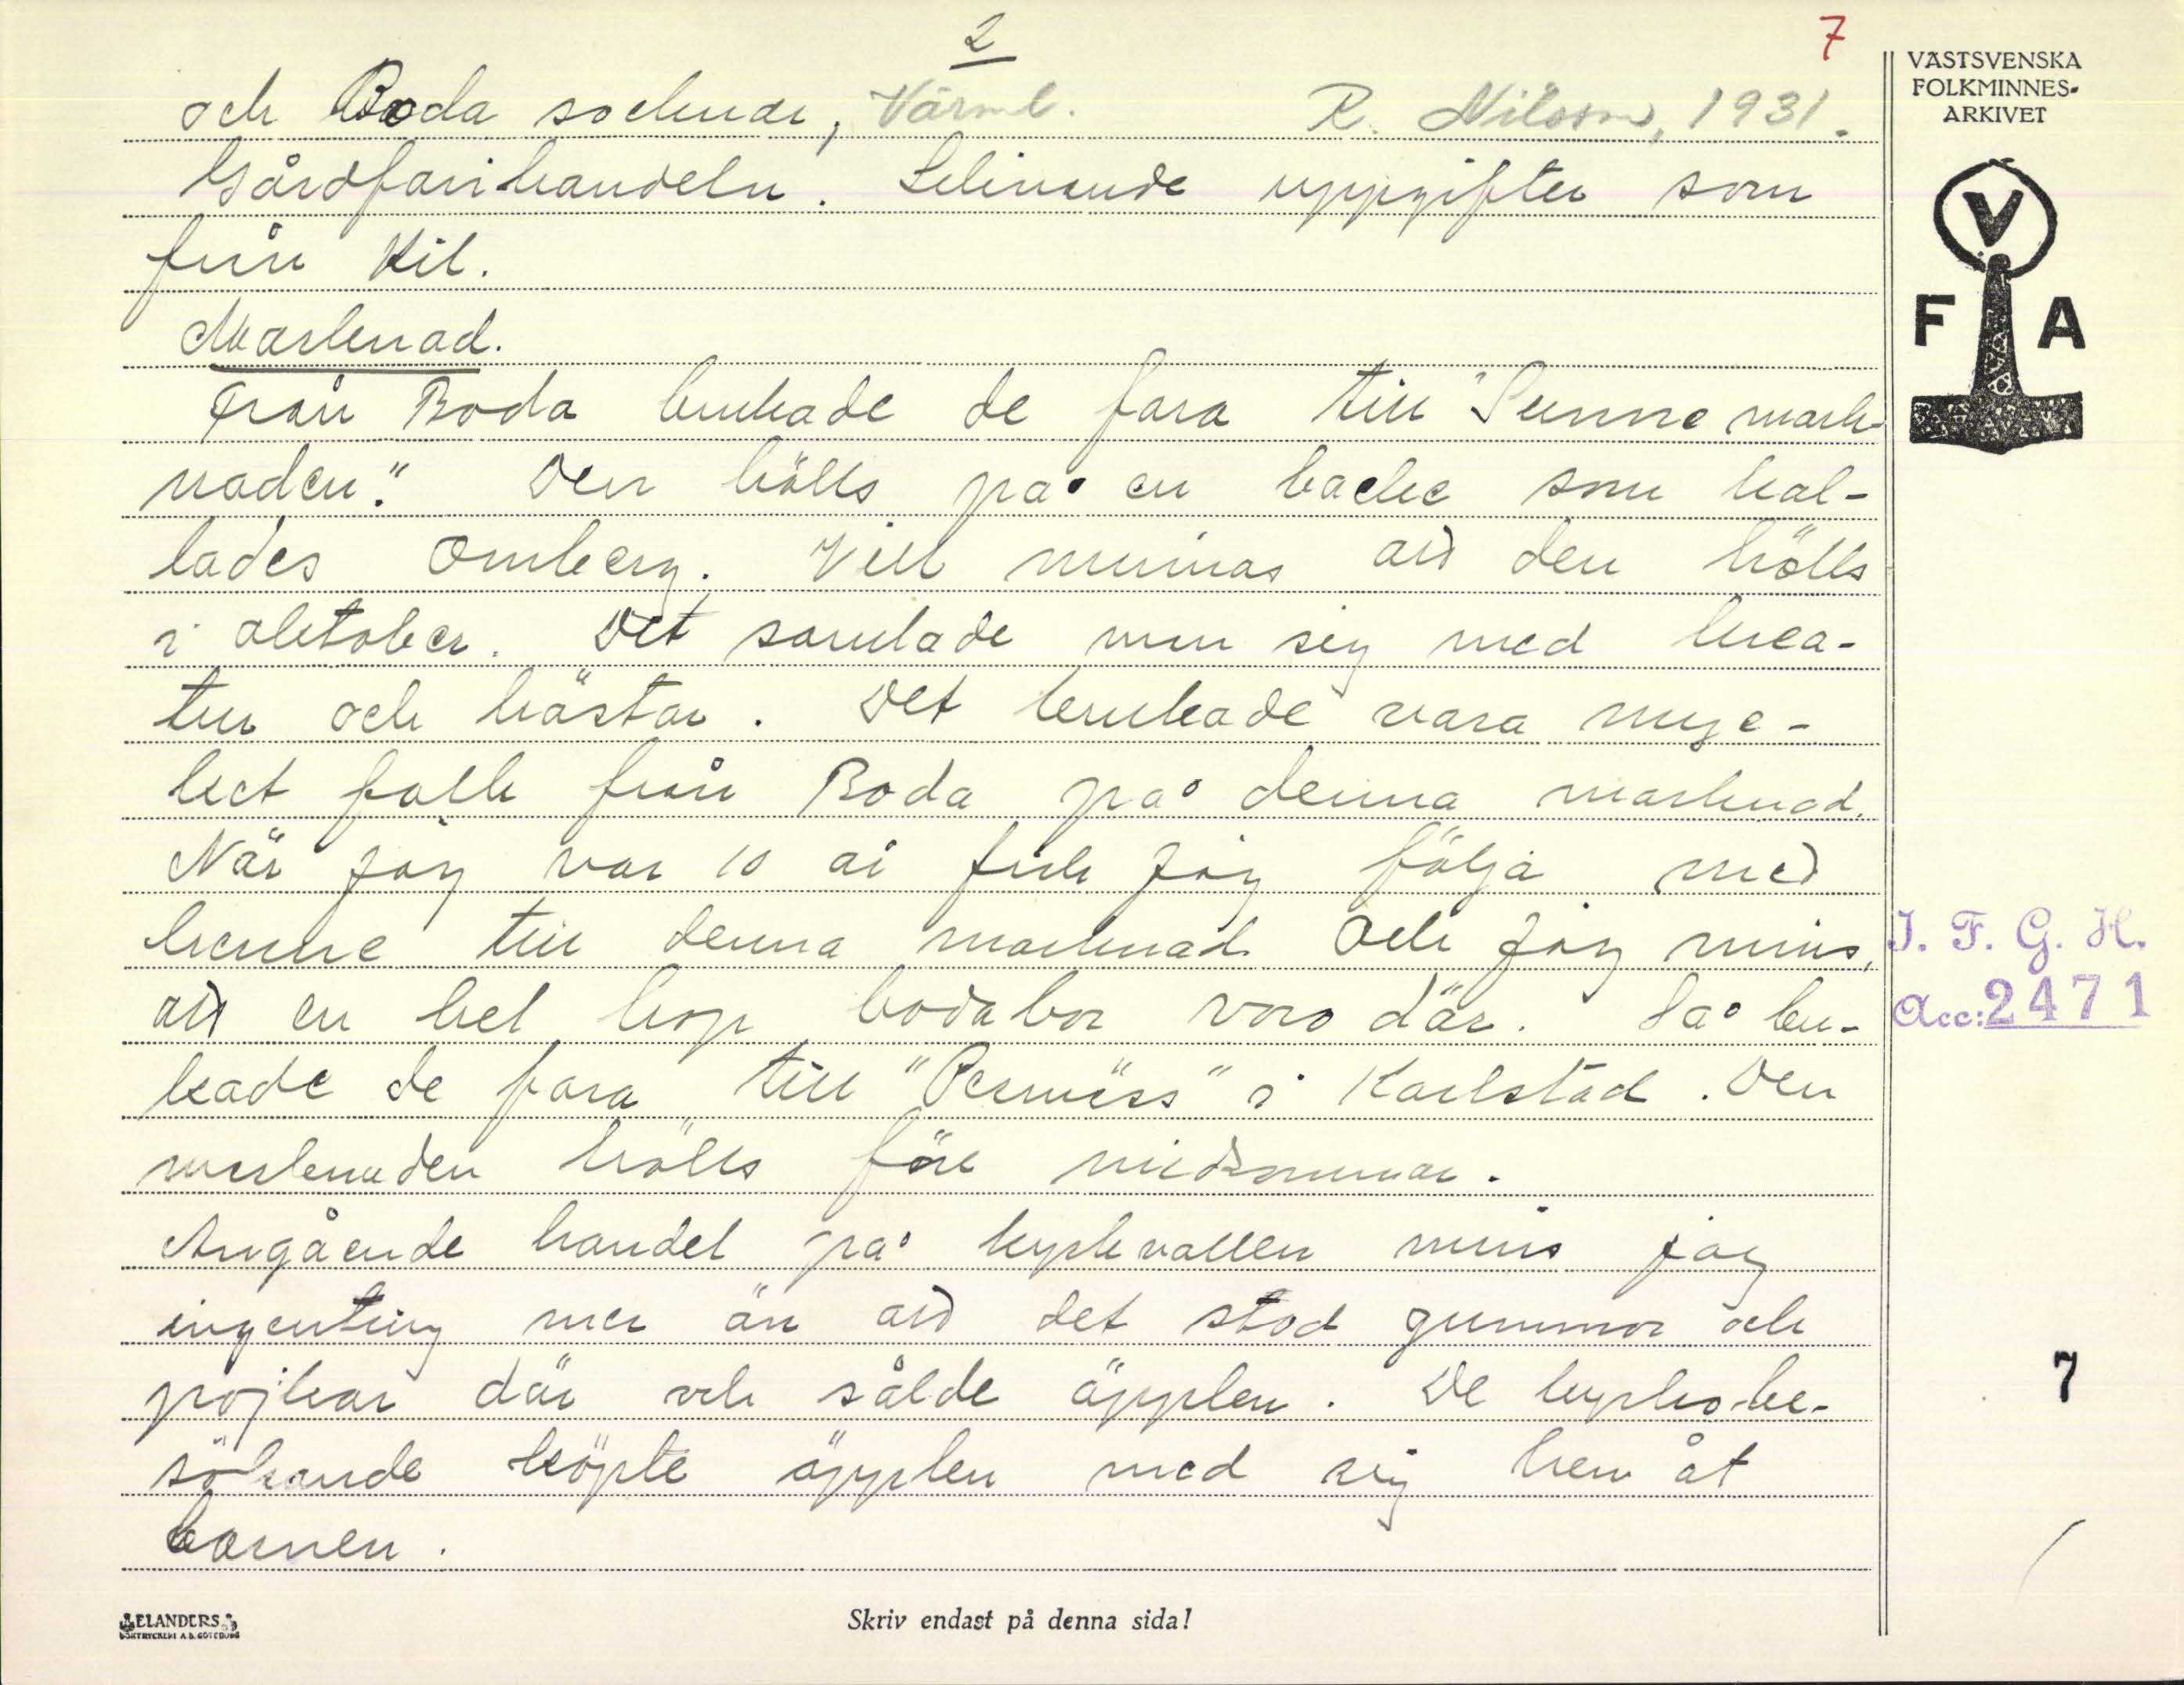 2
7
och Boda socknar, Värml. R. Nilsson, 1931.
Gårdfarihandeln. Liknande uppgifter som
från Kil.
Marknad.
Från Boda brukade de fara till "Sunne mark-
naden." Den hölls på en backe som kal-
lades Omberg. Vill minnas att den hölls
i oktober. Det samlade man sig med krea-
tur och hästar. Det brukade vara myc-
ket folk från Boda på denna marknad.
När jag var 10 år fick jag följa med
henne till denna marknad och jag mins,
att en hel hop bodabor voro där. Så bru-
kade de fara till "Persmäss" i Karlstad. Den
marknaden hölls före midsommar.
Angående handel på kyrkvallen mins jag
ingenting mer än att det stod gummor och
pojkar där och sålde äpplen. De kyrko-be-
sökande köpte äpplen med sig hem åt
barnen.
VÄSTSVENSKA
FOLKMINNES-
ARKIVET
V
F A
I. F. G. H.
Acc: 2471
7
ELANDERS
BOKTRYCKERI A.B. GÖTEBORG
Skriv endast på denna sida!